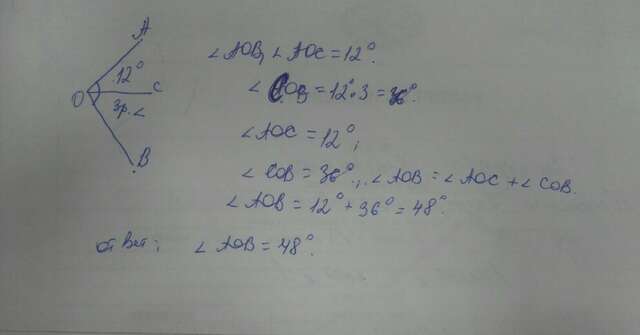 A
12°
O
C
3р. <
B
∠AOB, ∠AOC = 12°.
∠COB = 12°·3 = 36°.
∠AOC = 12°;
∠COB = 36°; ∠AOB = ∠AOC + ∠COB.
∠AOB = 12° + 36° = 48°.
ответ: ∠AOB = 48°.